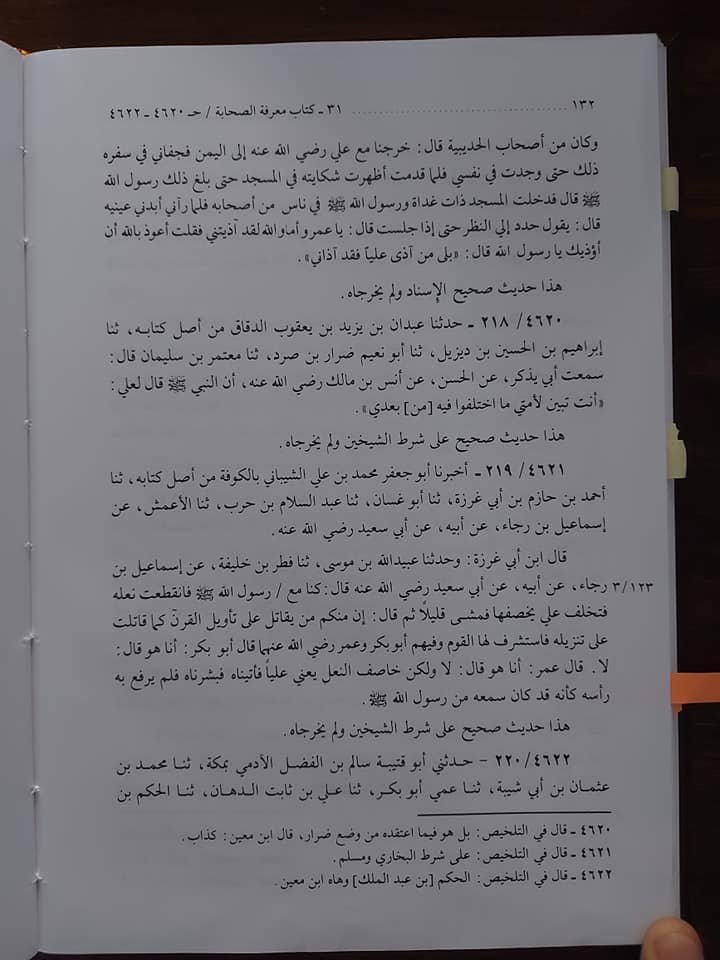 ١٣٢ ........................ ٣١ ـ كتاب معرفة الصحابة / حـ ٤٦٢٠ ـ ٤٦٢٢
وكان من أصحاب الحديبية قال: خرجنا مع علي رضي الله عنه إلى اليمن فجفاني في سفره
ذلك حتى وجدت في نفسي فلما قدمت أظهرت شكايته في المسجد حتى بلغ ذلك رسول الله
ﷺ قال فدخلت المسجد ذات غداة ورسول الله ﷺ في ناس من أصحابه فلما رآني أبدني عينيه
قال: يقول حدد إلي النظر حتى إذا جلست قال: يا عمرو أما والله لقد آذيتني فقلت أعوذ بالله أن
أؤذيك يا رسول الله قال: «بلى من آذى علياً فقد آذاني».
هذا حديث صحيح الإسناد ولم يخرجاه.
٢١٨/٤٦٢٠ ـ حدثنا عبدان بن يزيد بن يعقوب الدقاق من أصل كتابه، ثنا
إبراهيم بن الحسين بن ديزيل، ثنا أبو نعيم ضرار بن صرد، ثنا معتمر بن سليمان قال:
سمعت أبي يذكر، عن الحسن، عن أنس بن مالك رضي الله عنه، أن النبي ﷺ قال لعلي:
«أنت تبين لأمتي ما اختلفوا فيه [من] بعدي».
هذا حديث صحيح على شرط الشيخين ولم يخرجاه.
٢١٩/٤٦٢١ ـ أخبرنا أبو جعفر محمد بن علي الشيباني بالكوفة من أصل كتابه، ثنا
أحمد بن حازم بن أبي غرزة، ثنا أبو غسان، ثنا عبد السلام بن حرب، ثنا الأعمش، عن
إسماعيل بن رجاء، عن أبيه، عن أبي سعيد رضي الله عنه.
قال ابن أبي غرزة: وحدثنا عبيدالله بن موسى، ثنا فطر بن خليفة، عن إسماعيل بن
٣/١٢٣ رجاء، عن أبيه، عن أبي سعيد رضي الله عنه قال: كنا مع / رسول الله ﷺ فانقطعت نعله
فتخلف علي يخصفها فمشى قليلًا ثم قال: إن منكم من يقاتل على تأويل القرآن كما قاتلت
على تنزيله فاستشرف لها القوم وفيهم أبو بكر وعمر رضي الله عنهما قال أبو بكر: أنا هو قال:
لا. قال عمر: أنا هو قال: لا ولكن خاصف النعل يعني علياً فأتيناه فبشرناه فلم يرفع به
رأسه كأنه قد كان سمعه من رسول الله ﷺ.
هذا حديث صحيح على شرط الشيخين ولم يخرجاه.
٢٢٠/٤٦٢٢ - حدثني أبو قتيبة سالم بن الفضل الآدمي بمكة، ثنا محمد بن
عثمان بن أبي شيبة، ثنا عمي أبو بكر، ثنا علي بن ثابت الدهان، ثنا الحكم بن
٤٦٢٠ ـ قال في التلخيص: بل هو فيما اعتقده من وضع ضرار، قال ابن معين: كذاب.
٤٦٢١ ـ قال في التلخيص: على شرط البخاري ومسلم.
٤٦٢٢ ـ قال في التلخيص: الحكم [بن عبد الملك] وهاه ابن معين.